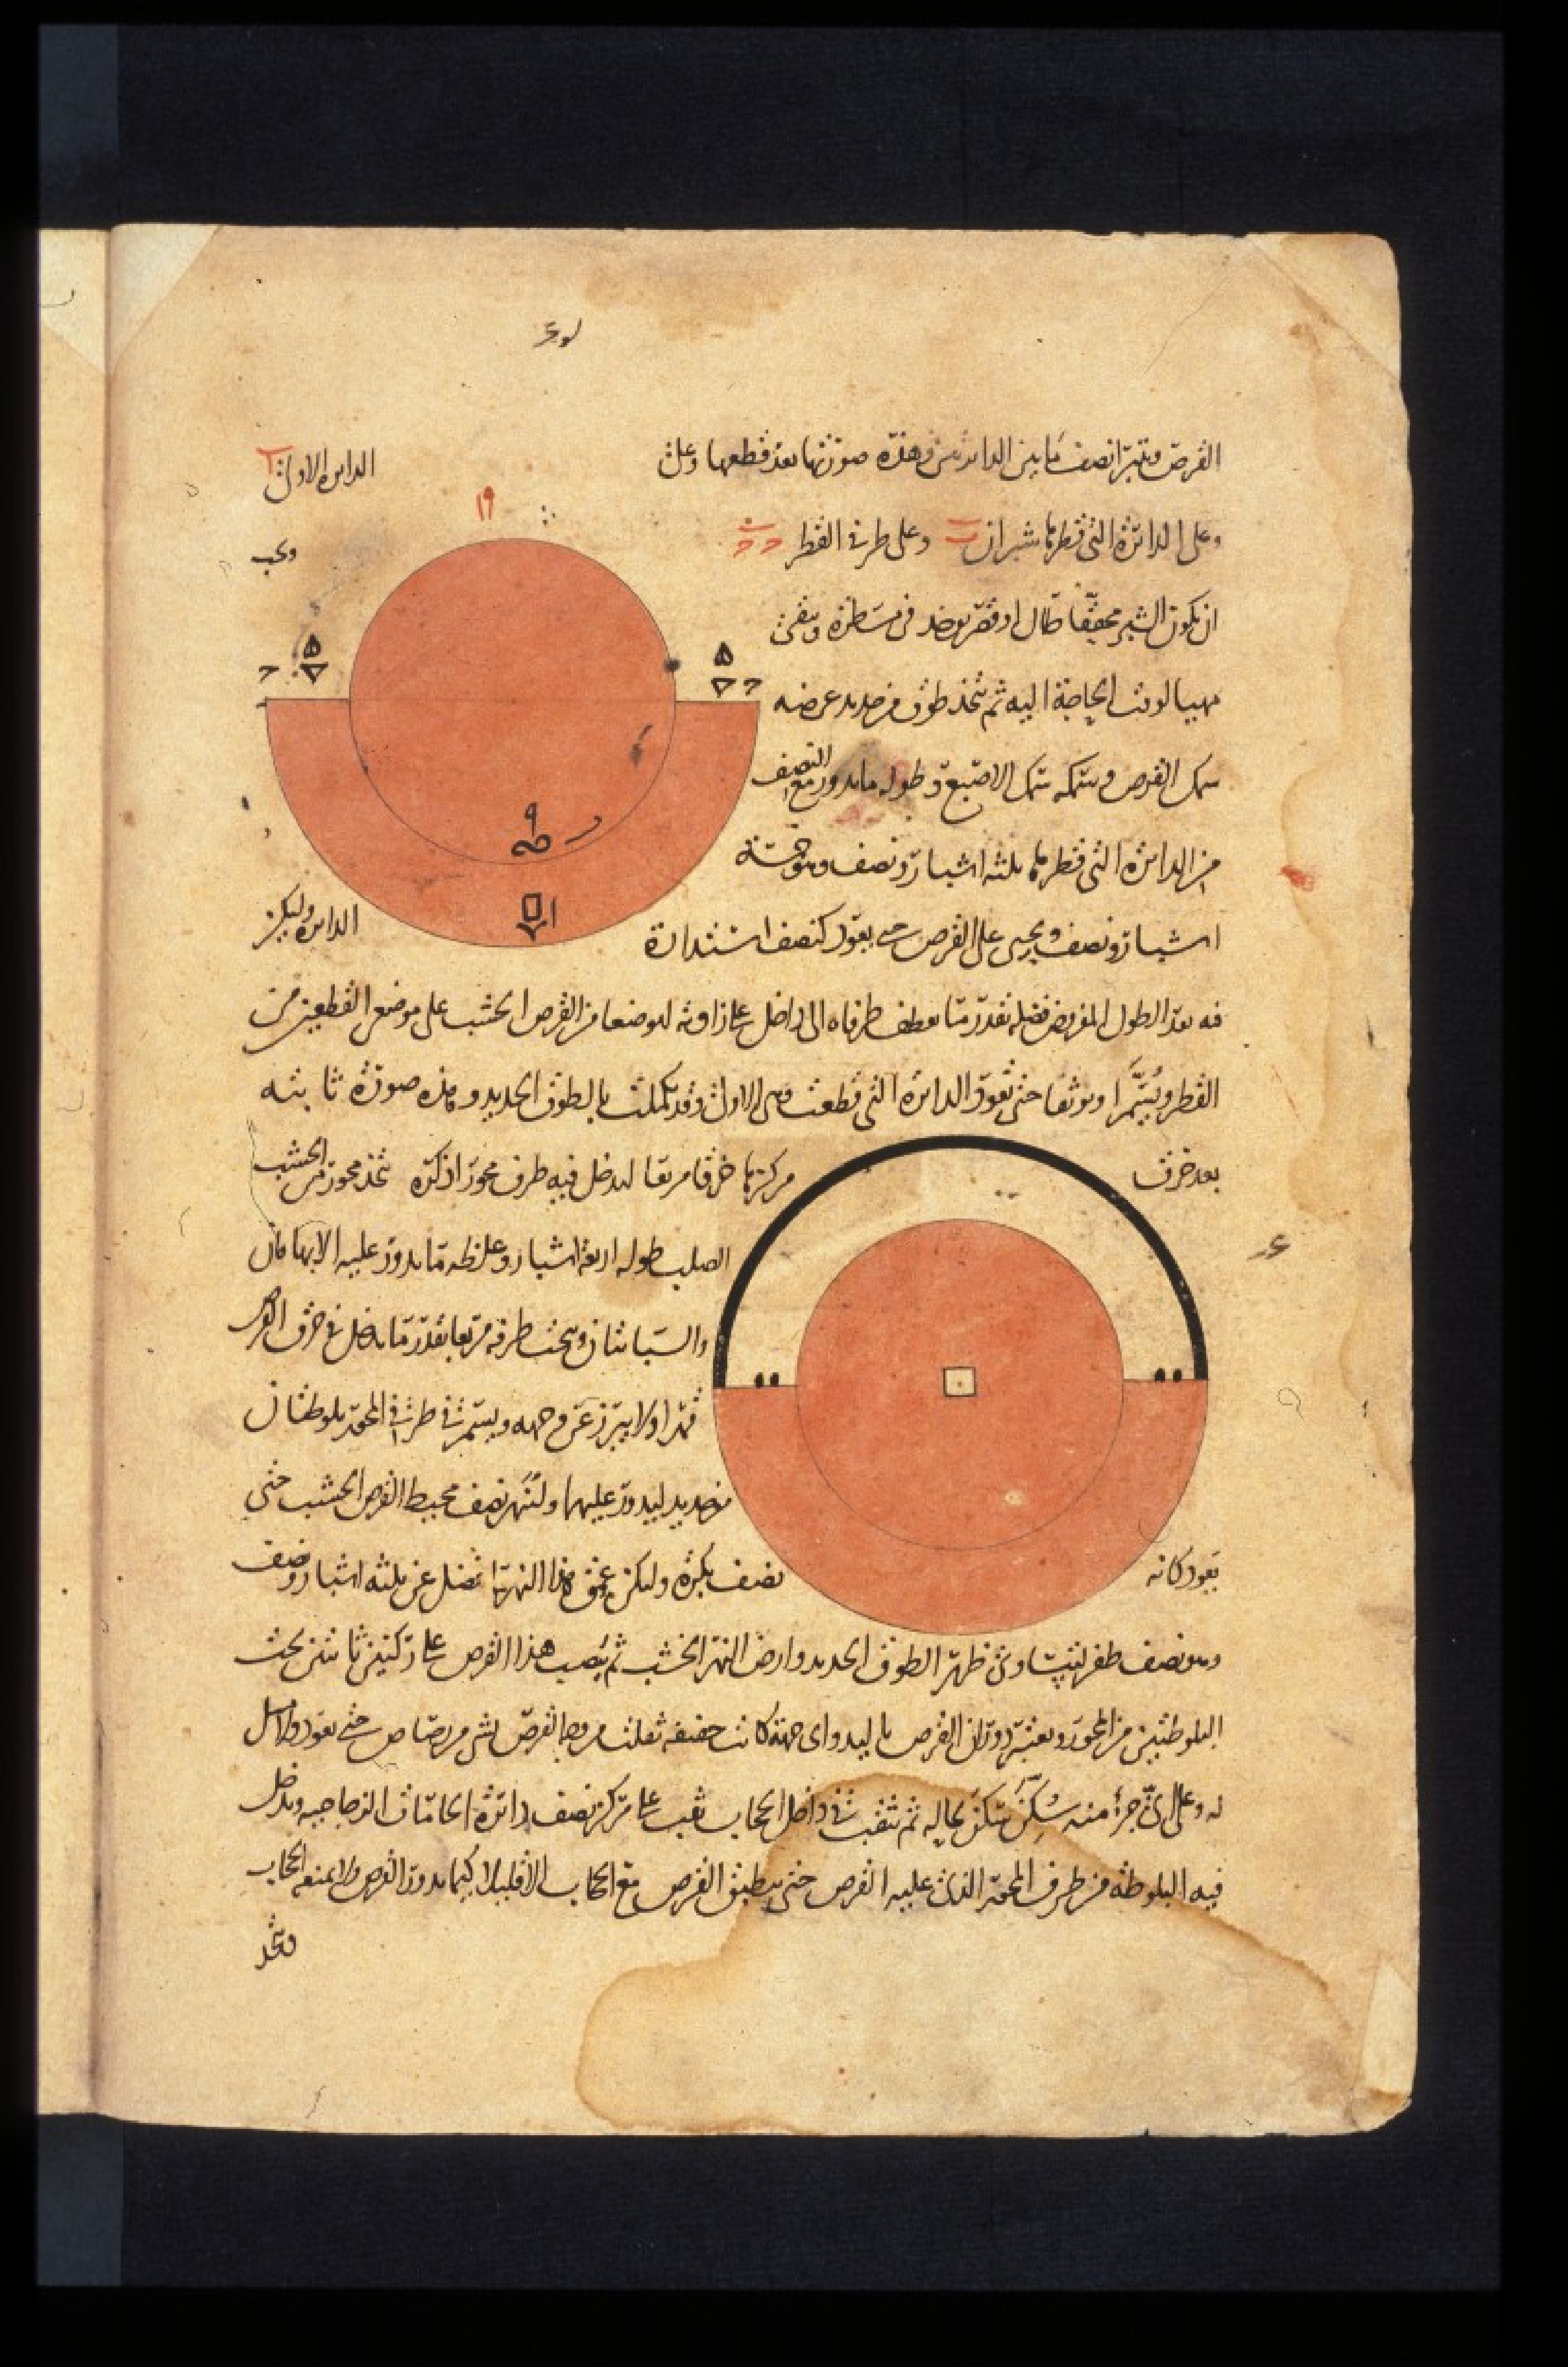 القرص ويتميز نصف ما بين الدائرتين وهذه صورتها بعد قطعها وعلى الدائرة الاولى
وعلى الدائرة التي قطرها شبران ب وعلى طرفي القطر ح ح ويجب
ان يكون الشبر محققا طال او قصر يوخذ في مسطرة ويبقى
مهيا لوقت الحاجة اليه ثم يتخذ طوق من حديد عرضه
سمك القرص وسمكه سمك الاصبع وطوله ما يدور مع النصف
من الدائرة التي قطرها ثلثه اشبار ونصف وهو خمسة
اشبار ونصف ويحنى على القرص حتى يعود كنصف استدارة الدائرة وليكن
فيه بعد الطول المفروض فضله بقدر ما يعطف طرفاه الى داخل على زاوية ليوضعا من القرص الخشب على موضعي القطعين من
القطر ويسمرا ويوثقا حتى تعود الدائرة التي قطعت وهي الاولى وقد كملت بالطوق الحديد وهذه صورة ثابته
بعد خرق مركزها خرقا مربعا ليدخل فيه طرف محور اذكره يتخذ محور من الخشب
الصلب طوله اربعة اشبار وغلظه ما يدور عليه الابهامان
والسبابتان وينحت طرفه مربعا بقدر ما يدخل في خرق القرص
قهرا ولا يبرز عن وجهه ويسمر في طرفي المحور بلوطتان
من حديد ليدور عليهما ولينهر نصف محيط القرص الخشب حتى
يعود كانه نصف بكرة وليكن عمق هذا النهر ما فضل عن ثلثه اشبار ونصف
وهو نصف ظفر ليتساوى ظهر الطوق الحديد وارض النهر الخشب ثم ينصب هذا القرص على ركنين ثابتين تحت
البلوطتين من المحور ويعتبر دوران القرص باليد واي جهة كانت خفيفه ثقلت من وجه القرص بشي من رصاص حتى يعود ولا ميل
له وعلى اي جزء منه سكن سكن بحاله ثم تثقب في داخل الحجاب ثقب على مركز نصف دائرة الجامات الزجاجيه ويدخل
فيه البلوطه من طرف المحور الذي عليه القرص حتى ينطبق القرص مع الحجاب الا قليلا كيما يدور القرص ولا يمنعه الحجاب
ويتخذ